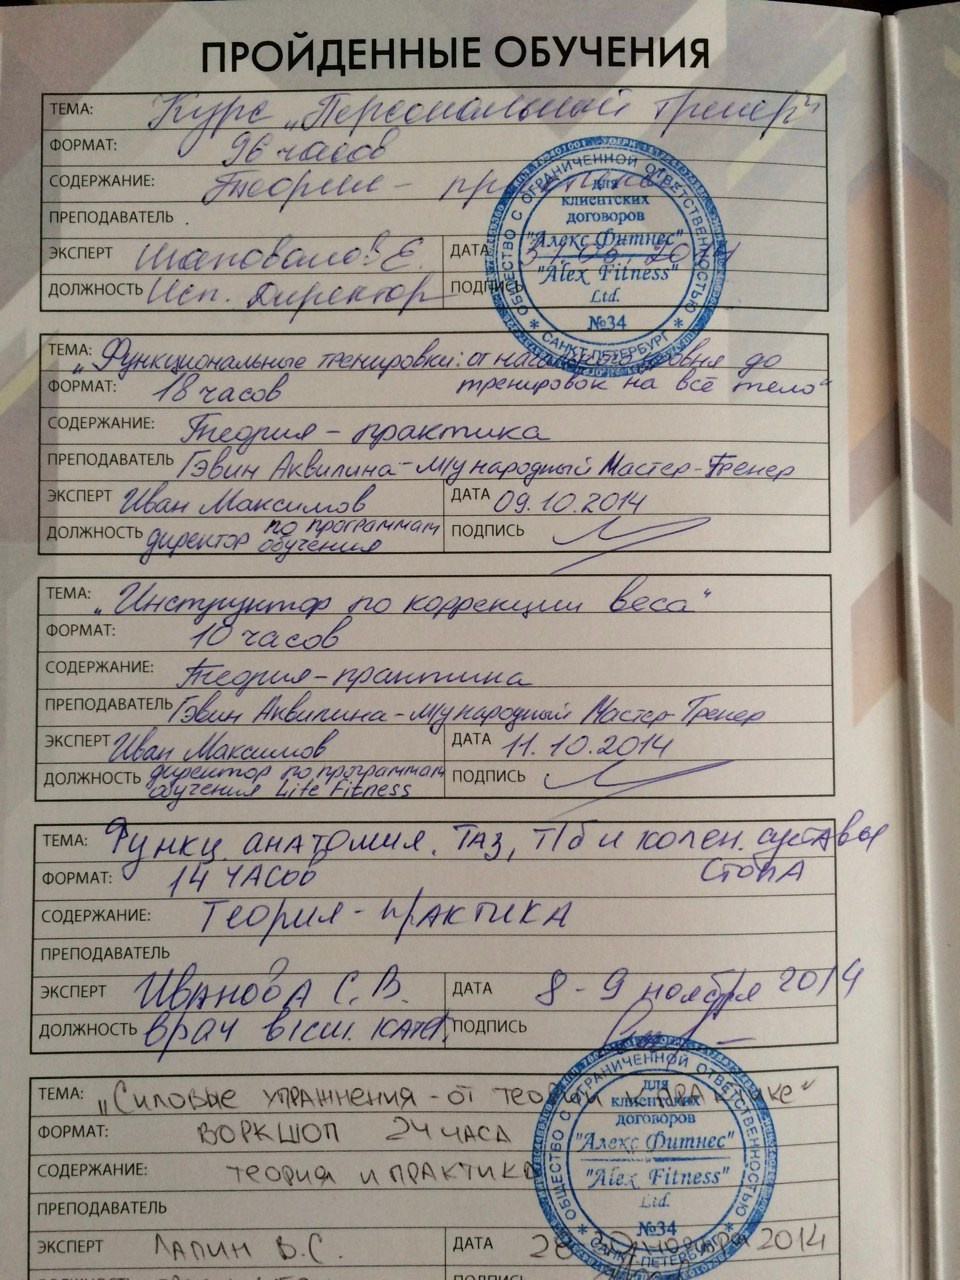 ПРОЙДЕННЫЕ ОБУЧЕНИЯ
ТЕМА: Курс „Персональный тренер“
ФОРМАТ: 96 часов
СОДЕРЖАНИЕ: Теория - практика
ПРЕПОДАВАТЕЛЬ
ЭКСПЕРТ Шаповалов Е. ДАТА 2014
ДОЛЖНОСТЬ Исп. Директор ПОДПИСЬ
ОБЩЕСТВО С ОГРАНИЧЕННОЙ ОТВЕТСТВЕННОСТЬЮ
* САНКТ-ПЕТЕРБУРГ *
для
клиентских
договоров
"Алекс Фитнес"
"Alex Fitness"
Ltd.
№34
ТЕМА: „Функциональные тренировки: от начального уровня до
тренировок на всё тело“
ФОРМАТ: 18 часов
СОДЕРЖАНИЕ: Теория - практика
ПРЕПОДАВАТЕЛЬ Гэвин Аквилина - м/у народный Мастер-Тренер
ЭКСПЕРТ Иван Максимов ДАТА 09.10.2014
ДОЛЖНОСТЬ директор по программам
обучения ПОДПИСЬ
ТЕМА: „Инструктор по коррекции веса“
ФОРМАТ: 10 часов
СОДЕРЖАНИЕ: Теория - практика
ПРЕПОДАВАТЕЛЬ Гэвин Аквилина - м/у народный Мастер-Тренер
ЭКСПЕРТ Иван Максимов ДАТА 11.10.2014
ДОЛЖНОСТЬ директор по программам
обучения Life Fitness ПОДПИСЬ
ТЕМА: Функц. анатомия. Таз, Т/б и колен. суставы
стопа
ФОРМАТ: 14 часов
СОДЕРЖАНИЕ: Теория - практика
ПРЕПОДАВАТЕЛЬ
ЭКСПЕРТ Иванова С.В. ДАТА 8 - 9 ноября 2014
ДОЛЖНОСТЬ врач высш. катег. ПОДПИСЬ
ТЕМА: „Силовые упражнения - от теории к практике“
ФОРМАТ: воркшоп 24 часа
СОДЕРЖАНИЕ: теория и практика
ПРЕПОДАВАТЕЛЬ
ЭКСПЕРТ Лапин В.С. ДАТА 2014
ОБЩЕСТВО С ОГРАНИЧЕННОЙ ОТВЕТСТВЕННОСТЬЮ
* САНКТ-ПЕТЕРБУРГ *
для
клиентских
договоров
"Алекс Фитнес"
"Alex Fitness"
Ltd.
№34